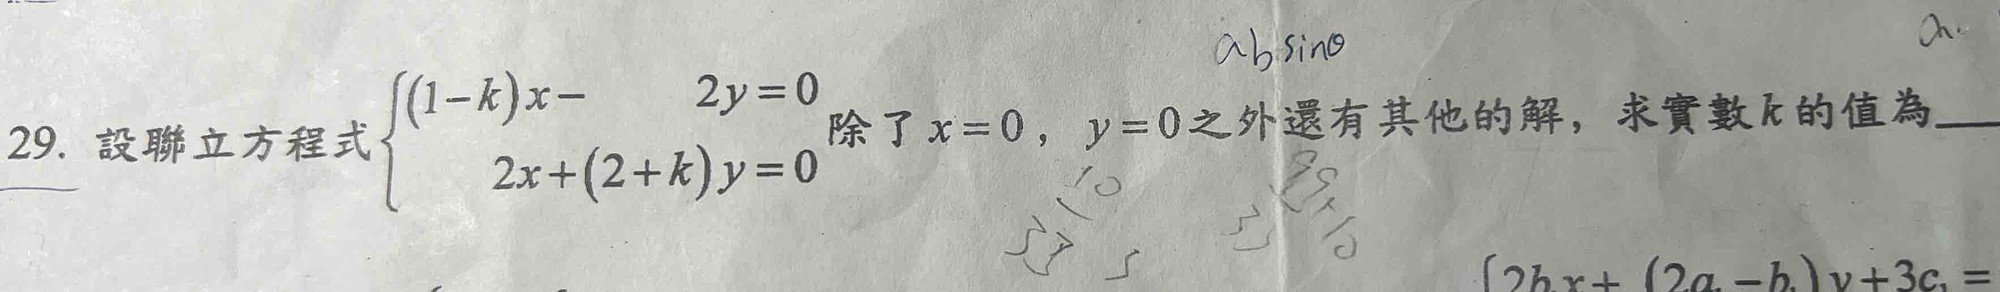 ab sinθ
29. 設聯立方程式{(1-k)x- 2y=0
2x+(2+k)y=0 除了x=0,y=0之外還有其他的解,求實數k的值為___
10
{2b₁x+(2a₁-b₁)y+3c₁=